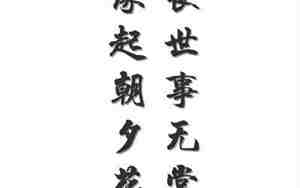 长世事无常
缘起朝夕花